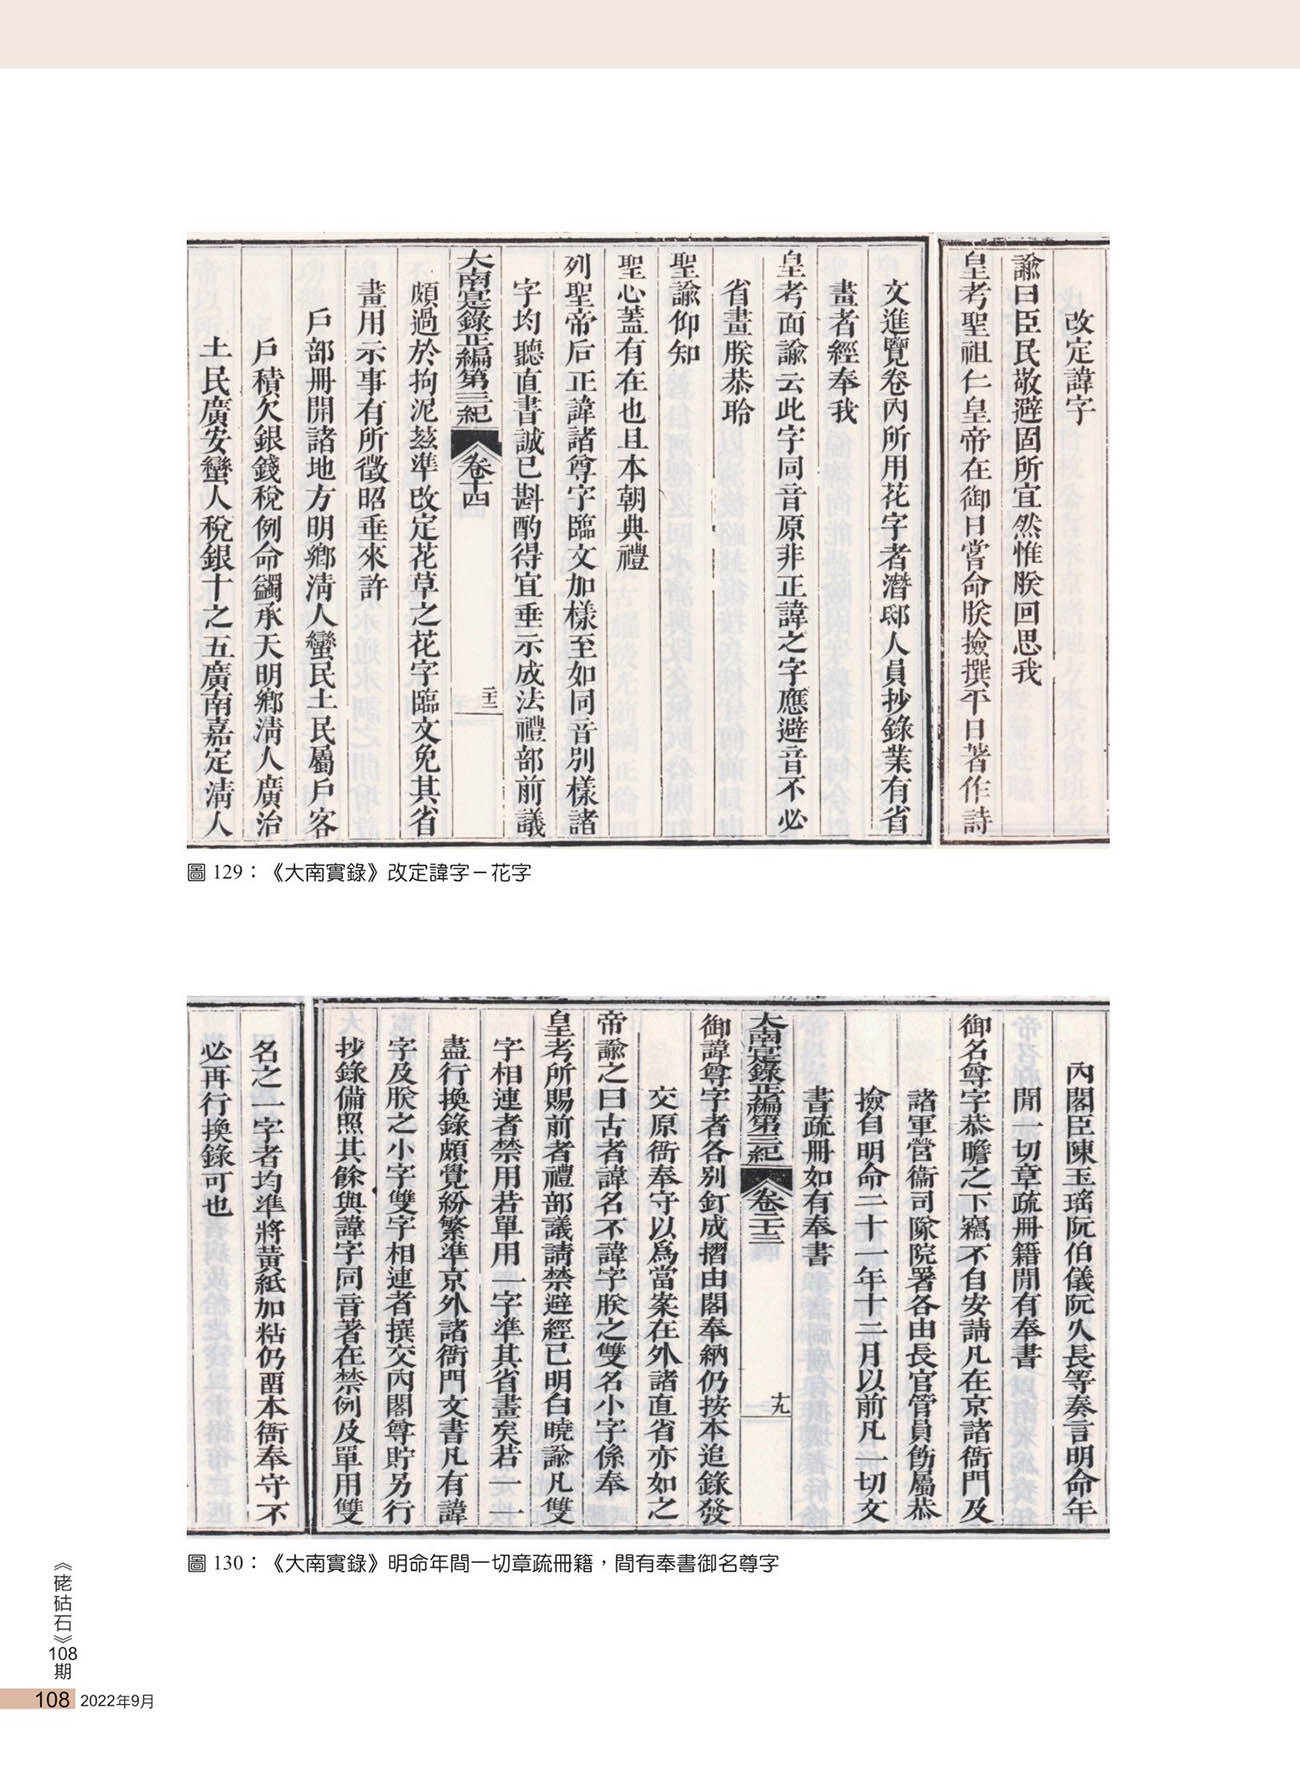 改定諱字
諭曰臣民敬避固所宜然惟朕回思我
皇考聖祖仁皇帝在御日嘗命朕撿撰平日著作詩
文進覽卷內所用花字者潛邸人員抄錄業有省
畫者經奉我
皇考面諭云此字同音原非正諱之字應避音不必
省畫朕恭聆
聖諭仰知
聖心蓋有在也且本朝典禮
列聖帝后正諱諸尊字臨文加樣至如同音別樣諸
字均聽直書誠已斟酌得宜垂示成法禮部前議
大南寔錄正編第三紀 卷十四 二十三
頗過於拘泥茲準改定花草之花字臨文免其省
畫用示事有所徵昭垂來許
戶部冊開諸地方明鄉清人蠻民土民屬戶客
戶積欠銀錢稅例命蠲承天明鄉清人廣治
土民廣安蠻人稅銀十之五廣南嘉定清人
圖 129：《大南實錄》改定諱字－花字
內閣臣陳玉瑤阮伯儀阮久長等奏言明命年
間一切章疏冊籍間有奉書
御名尊字恭瞻之下竊不自安請凡在京諸衙門及
諸軍營衛司隊院署各由長官管員飭屬恭
撿自明命二十一年十二月以前凡一切文
書疏冊如有奉書
大南寔錄正編第三紀 卷二十三 十九
御諱尊字者各別釘成摺由閣奉納仍按本追錄發
交原衙奉守以爲當案在外諸直省亦如之
帝諭之曰古者諱名不諱字朕之雙名小字係奉
皇考所賜前者禮部議請禁避經已明白曉諭凡雙
字相連者禁用若單用一字準其省畫矣若一一
盡行換錄頗覺紛繁準京外諸衙門文書凡有諱
字及朕之小字雙字相連者撰交內閣尊貯另行
抄錄備照其餘與諱字同音著在禁例及單用雙
名之一字者均準將黃紙加粘仍畱本衙奉守不
必再行換錄可也
圖 130：《大南實錄》明命年間一切章疏冊籍，間有奉書御名尊字
《硓𥑮石》108期
108 2022年9月